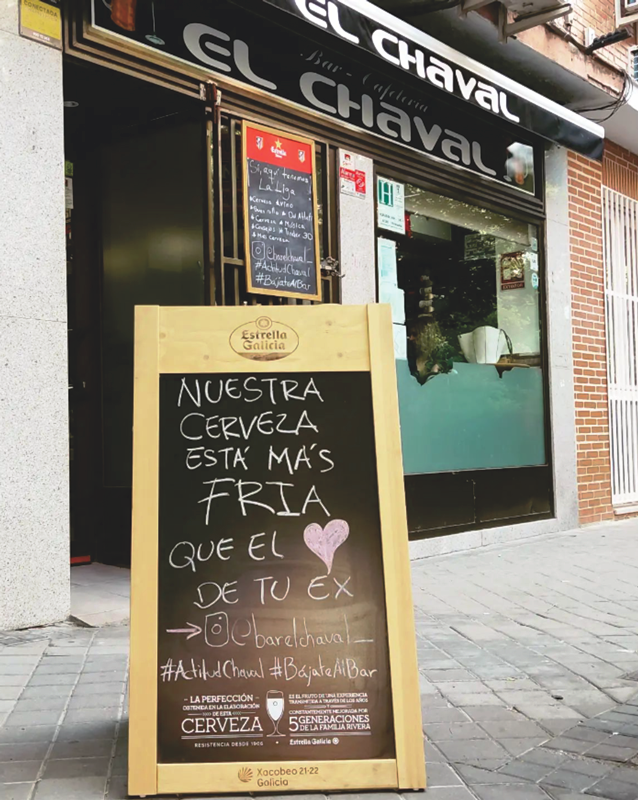 EL CHAVAL
Bar - Cafetería
EL CHAVAL
Estrella
¡Si, aquí tenemos!
La Liga
@barelchaval_
#ActitudChaval
#BájateAlBar
H
Estrella
Galicia
NUESTRA
CERVEZA
ESTÁ MÁS
FRIA
QUE EL
DE TU EX
@barelchaval_
#ActitudChaval #BájateAlBar
LA PERFECCIÓN
OBTENIDA EN LA ELABORACIÓN
DE ESTA
CERVEZA
RESISTENCIA DESDE 1906
ES EL FRUTO DE UNA EXPERIENCIA
TRANSMITIDA A TRAVÉS DE LOS AÑOS
Y
CONSTANTEMENTE MEJORADA POR
5 GENERACIONES
DE LA FAMILIA RIVERA
Estrella Galicia
Xacobeo 21·22
Galicia